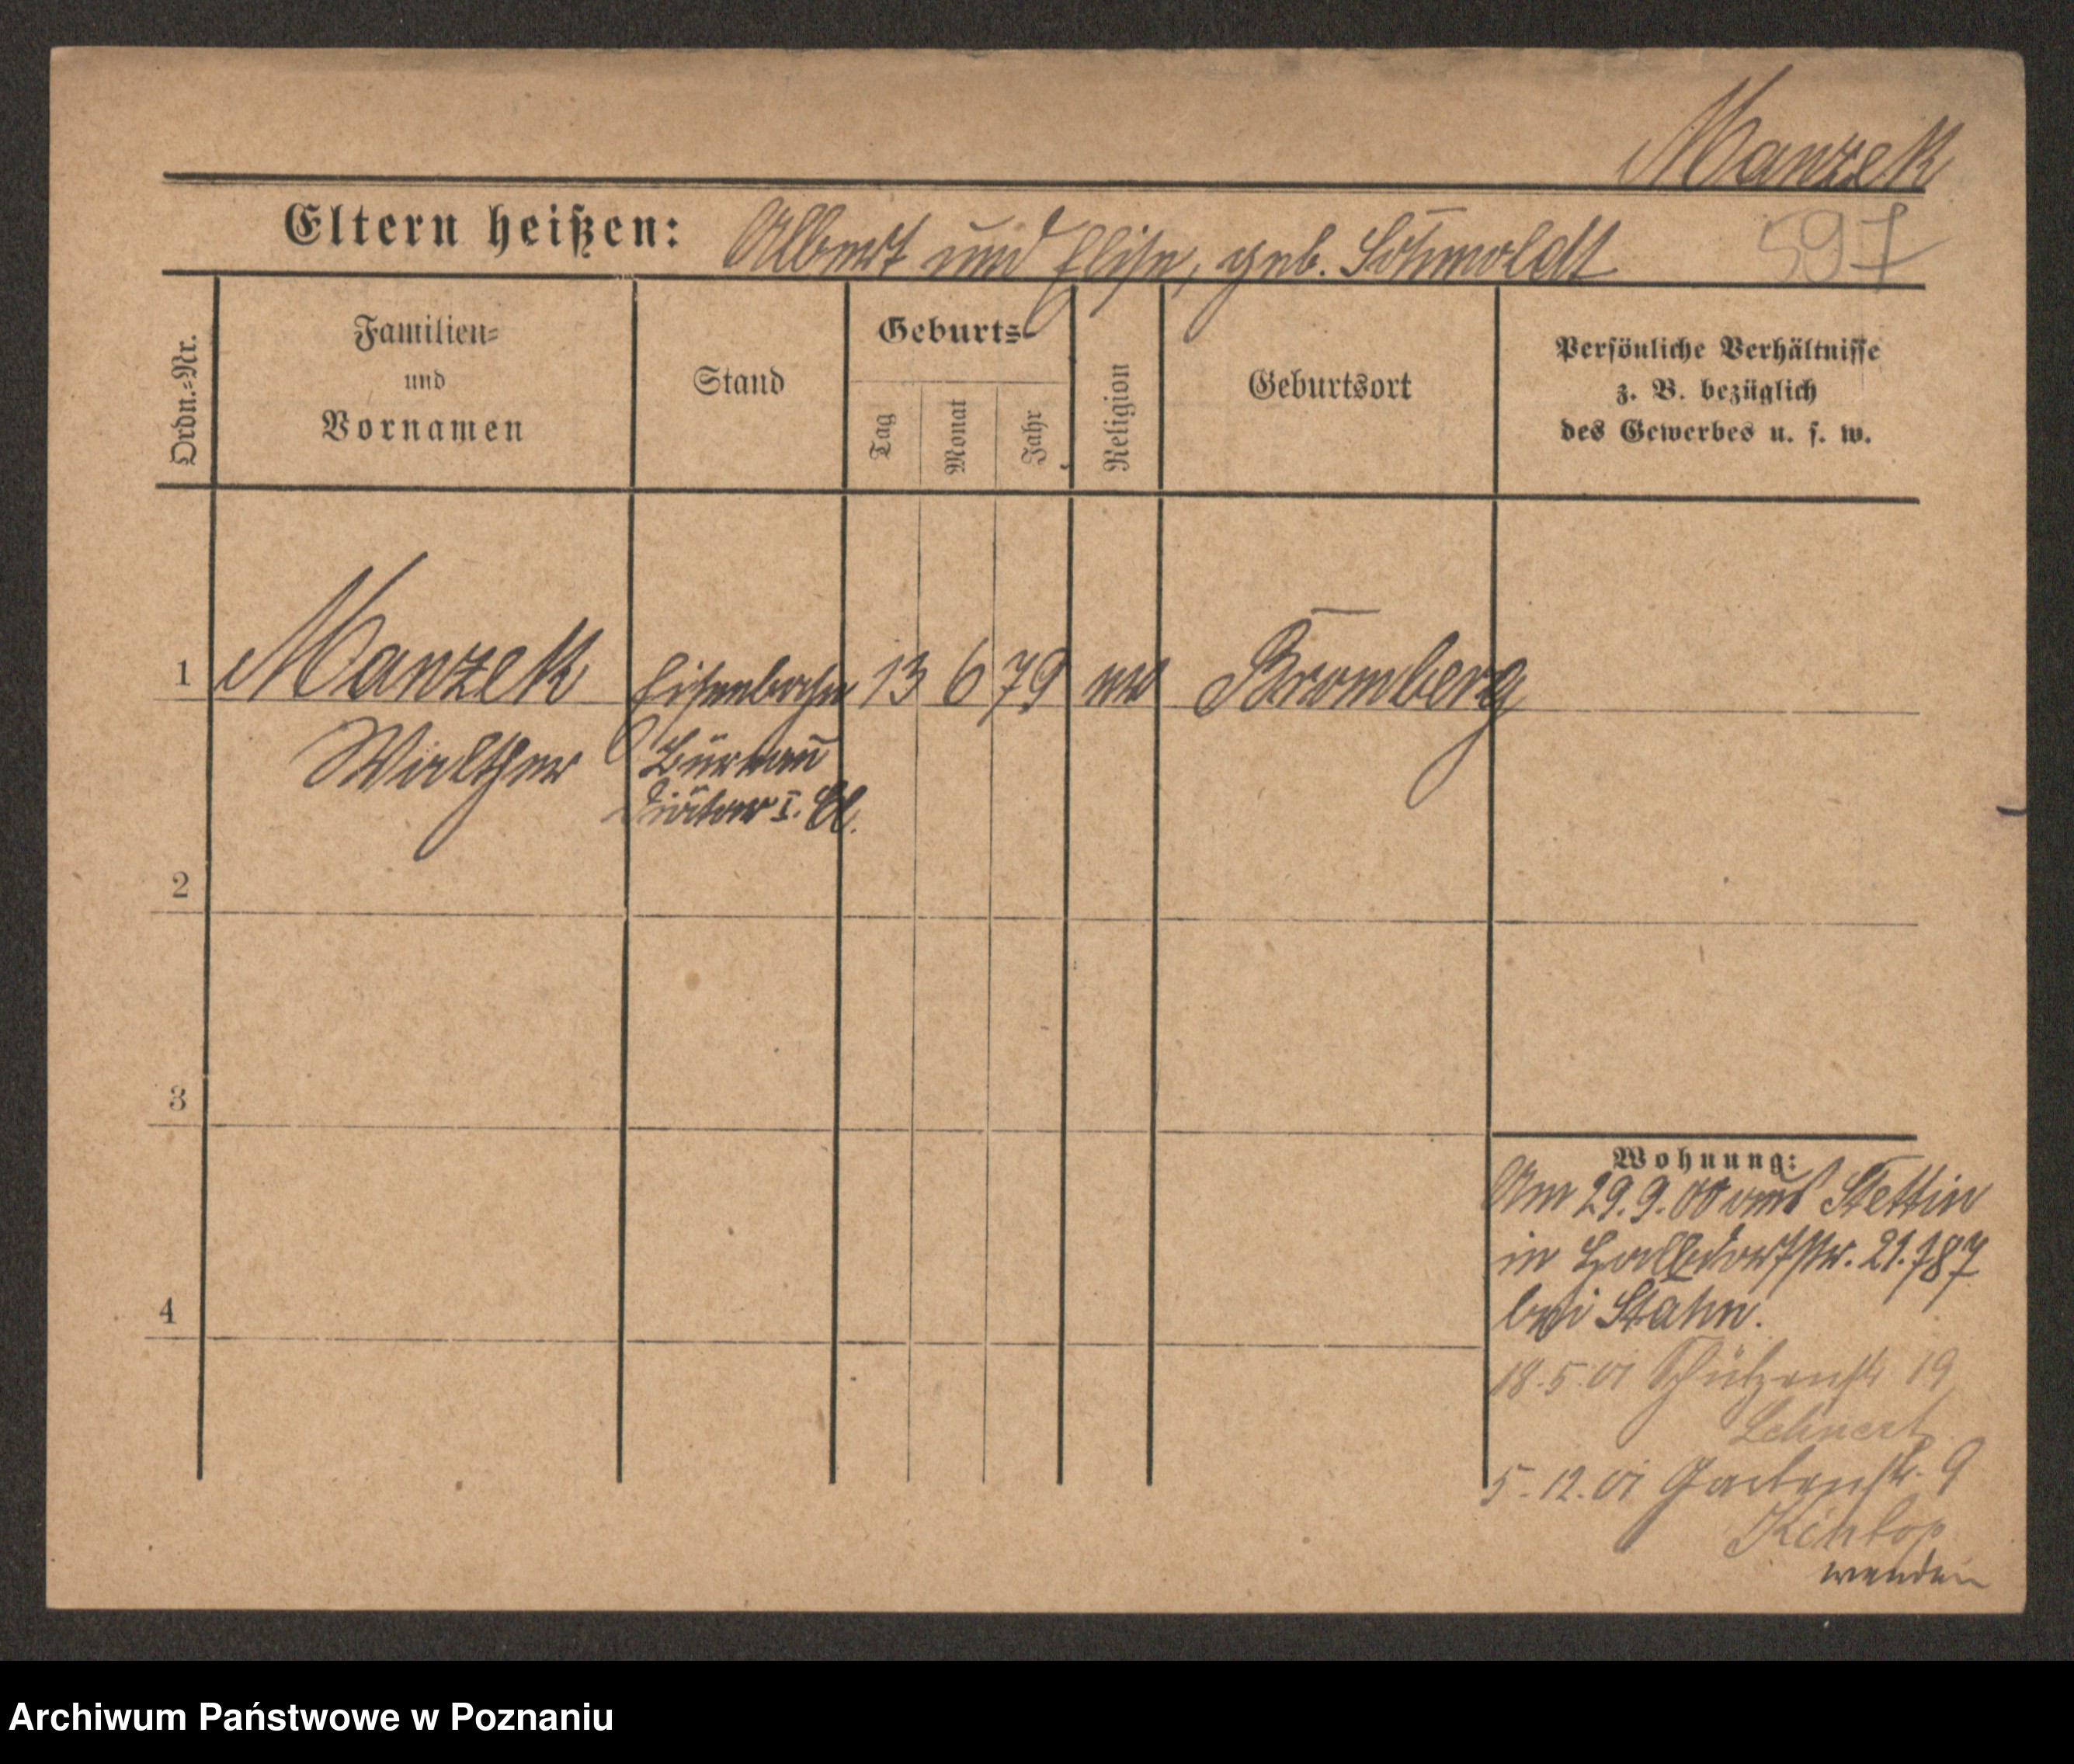 Manzek
Eltern heißen: Albert und Elise, geb.
597
Ordn.-Nr.
Familien- und Vornamen
Stand
Geburts-
Tag
Monat
Jahr
Religion
Geburtsort
Persönliche Verhältnisse
z. B. bezüglich
des Gewerbes u. s. w.
1 Manzek Eisenbahn 13 6 79 ev Bromberg
Walther Büreau
Diätar I. Cl.
2
3
4
Wohnung:
Am 29.9.00 aus Stettin
in
bei Stahn.
18.5.01 Schützenstr 19
Lehnert
5.12.01 Gartenstr. 9
wenden
Archiwum Państwowe w Poznaniu